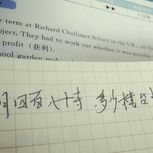 term at Richard Challoner School in the UK, all
ject. They had to work out whether it was possible
profit (获利).
school garden
四百八十寺 多少楼台